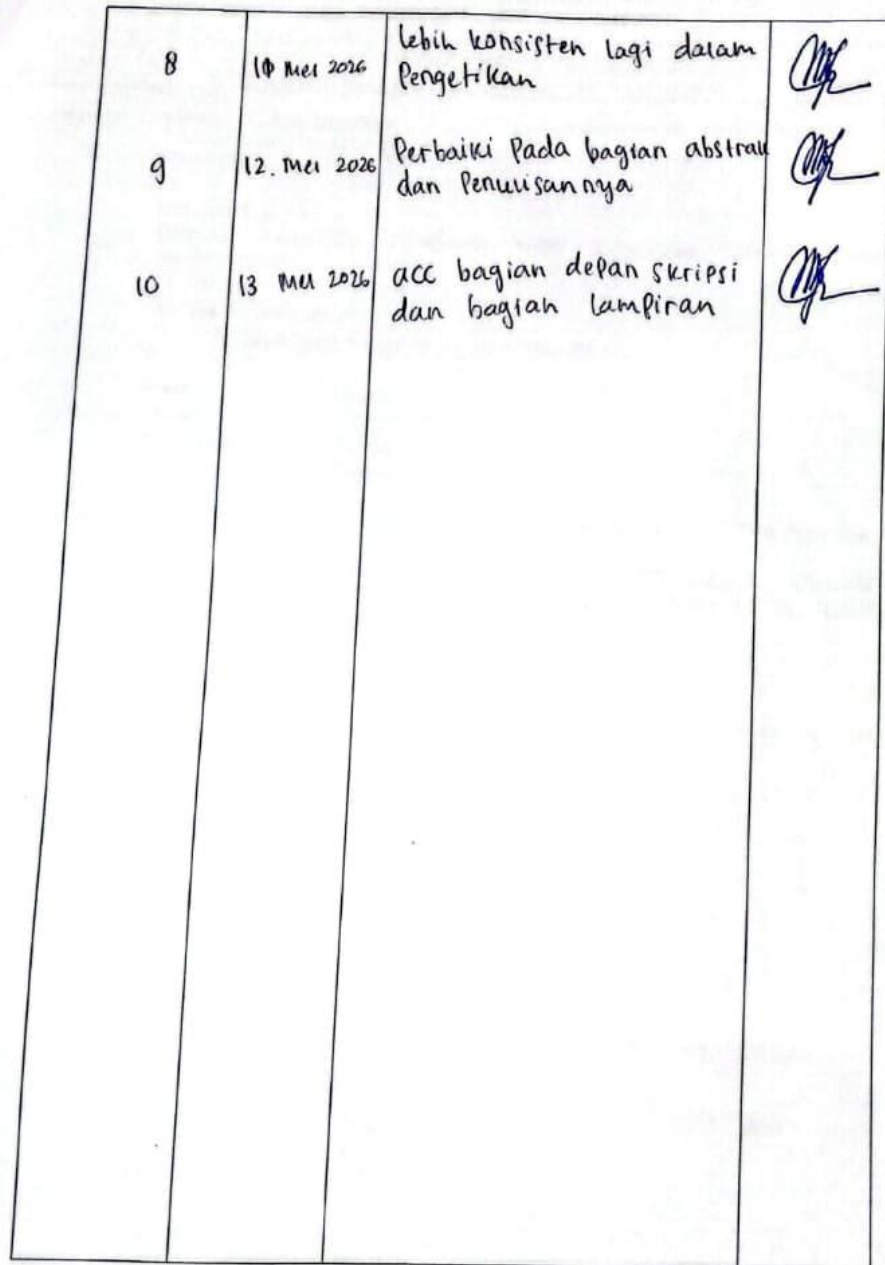 8 10 Mei 2026 lebih konsisten lagi dalam
Pengetikan
9 12. Mei 2026 Perbaiki Pada bagian abstrak
dan Penulisannya
10 13 Mei 2026 acc bagian depan skripsi
dan bagian lampiran